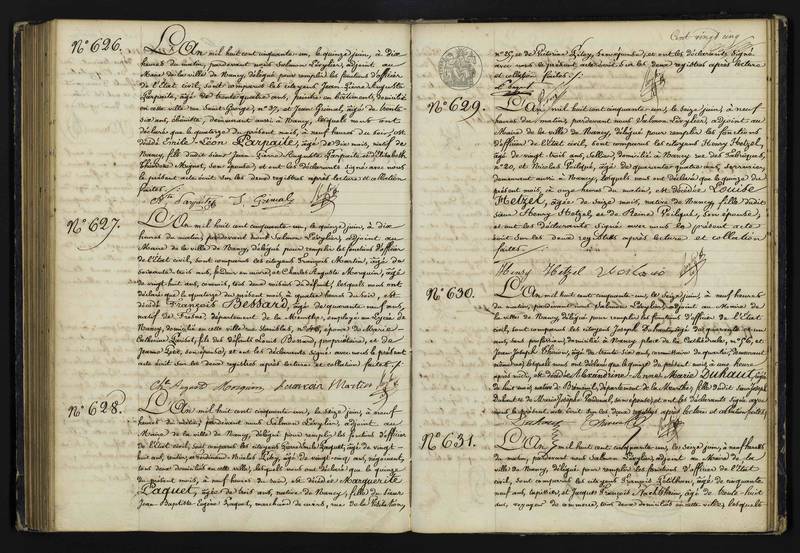 N° 626.
L'An mil huit cent cinquante-un, le quinze juin, à dix
heures du matin, pardevant nous Salomon Lévylier, adjoint au
Maire de la ville de Nancy, délégué pour remplir les fonctions d'officier
de l'Etat civil, sont comparus les citoyens Jean Pierre Auguste
Larpaite, âgé de trente quatre ans, peintre en bâtiments, domicilié
en cette ville rue Saint Georges n° 37, et Jean Grimal, âgé de trente
six ans, ébéniste, demeurant aussi à Nancy, lesquels nous ont
déclaré que le quatorze du présent mois, à neuf heures du soir, est
décédé Emile-Léon Larpaite, âgé de dix mois, natif de
Nancy, fils dudit sieur Jean Pierre Auguste Larpaite et d'Elisabeth
et ont les déclarants signé avec nous
le présent acte écrit sur les deux registres après lecture et collation
faites ./.
N° 627.
L'An mil huit cent cinquante-un, le quinze juin, à dix
heures du matin, pardevant nous Salomon Lévylier, adjoint au
Maire de la ville de Nancy, délégué pour remplir les fonctions d'officier
de l'Etat civil, sont comparus les citoyens François Martin, âgé de
soixante trois ans, et Charles Auguste Morquin, âgé
de vingt huit ans, commis, tous deux voisins du défunt, lesquels nous ont
déclaré que le quatorze du présent mois, à quatre heures du soir, est
décédé François Bessard, âgé de quarante neuf ans,
natif de Fresne, département de la Meurthe, employé au Lycée de
Nancy, domicilié en cette ville rue Stanislas, époux de Marie
Catherine fils des défunts Louis Bessard, propriétaire, et de
Jeanne son épouse; et ont les déclarants signé avec nous le présent
acte écrit sur les deux registres après lecture et collation faites ./.
Morquin Martin
N° 628.
L'An mil huit cent cinquante-un, le seize juin, à neuf
heures du matin, pardevant nous Salomon Lévylier, adjoint au
Maire de la ville de Nancy, délégué pour remplir les fonctions d'officier
de l'Etat civil, sont comparus les citoyens Paquet, âgé de vingt-
huit ans, et Nicolas âgé de vingt cinq ans, négociant,
tous deux domiciliés en cette ville, lesquels nous ont déclaré que le quinze
du présent mois, à neuf heures du soir, est décédée Marguerite
Paquet, âgée de trois ans, native de Nancy, fille du sieur
Jean Baptiste Eugène Paquet, marchand de vins, rue de la Visitation,
Cent vingt cinq
n° 25, et de Victorine son épouse; et ont les déclarants signé
avec nous le présent acte écrit sur les deux registres après lecture
et collation faites ./.
N° 629.
L'An mil huit cent cinquante-un, le seize juin, à neuf
heures du matin, pardevant nous Salomon Lévylier, adjoint au
Maire de la ville de Nancy, délégué pour remplir les fonctions
d'officier de l'Etat civil, sont comparus les citoyens Henry Hetzel,
âgé de vingt trois ans, sellier, domicilié à Nancy rue des Fabriques,
n° 20, et Nicolas âgé de quarante quatre ans,
demeurant aussi à Nancy, lesquels nous ont déclaré que le quinze du
présent mois, à onze heures du matin, est décédée Louise
Hetzel, âgée de seize mois, native de Nancy, fille dudit
sieur Henry Hetzel, et de Reine son épouse;
et ont les déclarants signé avec nous le présent acte
écrit sur les deux registres après lecture et collation
faites ./.
Henry Hetzel
N° 630.
L'An mil huit cent cinquante-un, le seize juin, à neuf heures
du matin, pardevant nous Salomon Lévylier, adjoint au Maire de
la ville de Nancy, délégué pour remplir les fonctions d'officier de l'Etat
civil, sont comparus les citoyens Joseph Duhaut, âgé de quarante un
ans, domicilié à Nancy, place de la Cathédrale, n° 56, et
Jean Joseph âgé de trente six ans, commissaire de quartier, demeurant
lesquels nous ont déclaré que le quinze du présent mois, à une heure
après midi, est décédée Alexandrine-Anne-Marie Duhaut, âgée
de huit mois, native de département de la Meurthe, fille dudit sieur Joseph
Duhaut et de Marie Josèphe son épouse; et ont les déclarants signé avec
nous le présent acte écrit sur les deux registres après lecture et collation faites ./.
Duhaut
N° 631.
L'An mil huit cent cinquante-un, le seize juin, à neuf heures
du matin, pardevant nous Salomon Lévylier, adjoint au Maire de la
ville de Nancy, délégué pour remplir les fonctions d'officier de l'Etat
civil, sont comparus les citoyens François âgé de cinquante
neuf ans, tapissier, et Jacques François âgé de trente-huit
ans, voyageur de commerce, tous deux domiciliés en cette ville, lesquels